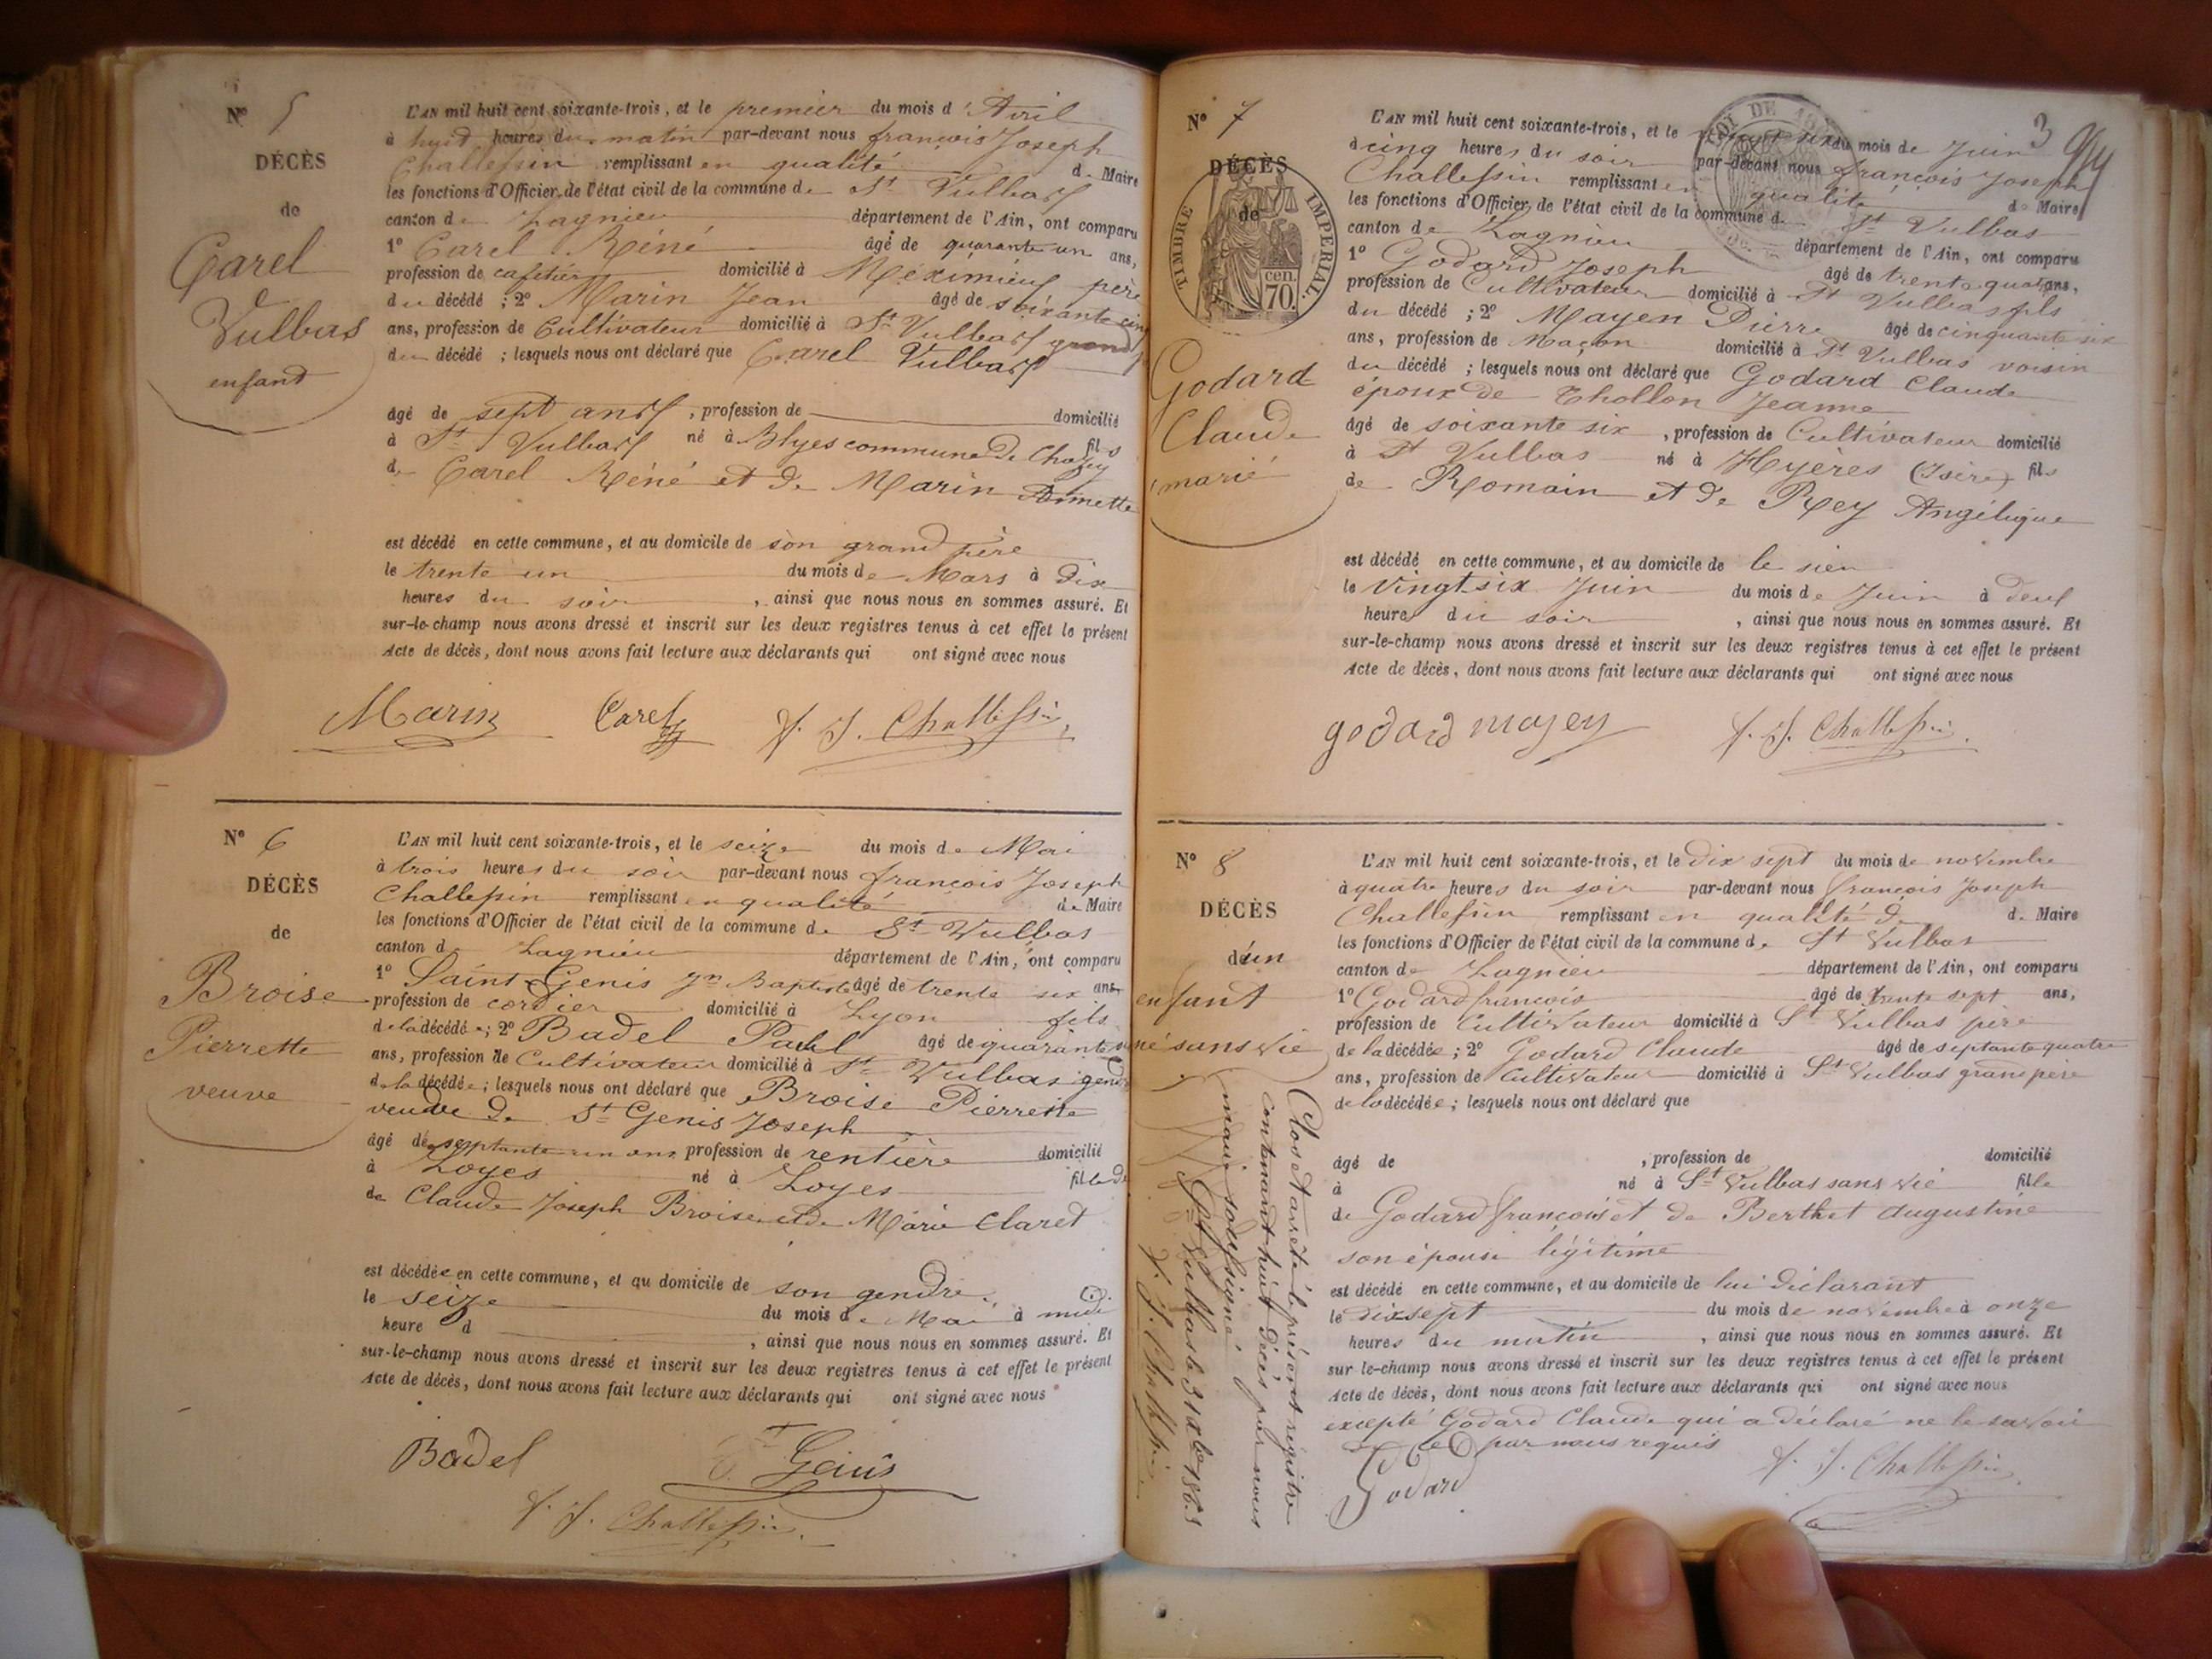 N° 5
DÉCÈS
de
Carel
Vulbas
enfant
L'AN mil huit cent soixante-trois, et le premier du mois d'Avril
à huit heures du matin par-devant nous françois Joseph
Challessin remplissant en qualité de Maire
les fonctions d'Officier de l'état civil de la commune de St Vulbas
canton de Lagnieu département de l'Ain, ont comparu
1° Carel Réné âgé de quarante un ans,
profession de cafetier domicilié à Méximieux père
du décédé ; 2° Marin Jean âgé de soixante cinq
ans, profession de Cultivateur domicilié à St Vulbas grand
du décédé ; lesquels nous ont déclaré que Carel Vulbas
âgé de sept ans, profession de domicilié
à St Vulbas né à Blyes commune de Chazey fils
de Carel Réné et de Marin Annette
est décédé en cette commune, et au domicile de son grand père
le trente un du mois de Mars à dix
heures du soir, ainsi que nous nous en sommes assuré. Et
sur-le-champ nous avons dressé et inscrit sur les deux registres tenus à cet effet le présent
Acte de décès, dont nous avons fait lecture aux déclarants qui ont signé avec nous
Marin Carel f. J. Challessin
N° 6
DÉCÈS
de
Broise
Pierrette
veuve
L'AN mil huit cent soixante-trois, et le seize du mois de Mai
à trois heures du soir par-devant nous françois Joseph
Challessin remplissant en qualité de Maire
les fonctions d'Officier de l'état civil de la commune de St Vulbas
canton de Lagnieu département de l'Ain, ont comparu
1° Saint-Genis Jn Baptiste âgé de trente six ans
profession de cordier domicilié à Lyon fils
de la décédée ; 2° Badel Paul âgé de quarante
ans, profession de Cultivateur domicilié à St Vulbas gendre
de la décédée ; lesquels nous ont déclaré que Broise Pierrette
veuve de St Genis Joseph
âgé de septante un ans profession de rentière domicilié
à Loyes né à Loyes fille de
de Claude Joseph Broise et de Marie Claret
est décédée en cette commune, et au domicile de son gendre
le seize du mois de Mai à midi
heure d , ainsi que nous nous en sommes assuré. Et
sur-le-champ nous avons dressé et inscrit sur les deux registres tenus à cet effet le présent
Acte de décès, dont nous avons fait lecture aux déclarants qui ont signé avec nous
Badel St Genis
f. J. Challessin
3
N° 7
DÉCÈS
de
TIMBRE IMPÉRIAL
cen. 70.
Godard
Claude
marié
L'AN mil huit cent soixante-trois, et le vingt six du mois de Juin
à cinq heures du soir par-devant nous françois Joseph
Challessin remplissant en qualité de Maire
les fonctions d'Officier de l'état civil de la commune de St Vulbas
canton de Lagnieu département de l'Ain, ont comparu
1° Godard Joseph âgé de trente quatre ans,
profession de Cultivateur domicilié à St Vulbas fils
du décédé ; 2° Mayen Pierre âgé de cinquante six
ans, profession de Maçon domicilié à St Vulbas voisin
du décédé ; lesquels nous ont déclaré que Godard Claude
époux de Thollon Jeanne
âgé de soixante six, profession de Cultivateur domicilié
à St Vulbas né à Hyères (Isère) fils
de Romain et de Rey Angélique
est décédé en cette commune, et au domicile de le sien
le Vingt six Juin du mois de Juin à deux
heures du soir, ainsi que nous nous en sommes assuré. Et
sur-le-champ nous avons dressé et inscrit sur les deux registres tenus à cet effet le présent
Acte de décès, dont nous avons fait lecture aux déclarants qui ont signé avec nous
godard mayen f. J. Challessin
N° 8
DÉCÈS
d'un
enfant
né sans vie
L'AN mil huit cent soixante-trois, et le dix sept du mois de novembre
à quatre heures du soir par-devant nous françois Joseph
Challessin remplissant en qualité de de Maire
les fonctions d'Officier de l'état civil de la commune de St Vulbas
canton de Lagnieu département de l'Ain, ont comparu
1° Godard françois âgé de trente sept ans,
profession de Cultivateur domicilié à St Vulbas père
de la décédée ; 2° Godard Claude âgé de septante quatre
ans, profession de Cultivateur domicilié à St Vulbas grand père
de la décédée ; lesquels nous ont déclaré que
âgé de , profession de domicilié
à né à St Vulbas sans vie fille
de Godard françois et de Berthet augustine
son épouse légitime
est décédé en cette commune, et au domicile de lui déclarant
le dix sept du mois de novembre à onze
heures du matin, ainsi que nous nous en sommes assuré. Et
sur le-champ nous avons dressé et inscrit sur les deux registres tenus à cet effet le présent
Acte de décès, dont nous avons fait lecture aux déclarants qui ont signé avec nous
excepté Godard Claude qui a déclaré ne le savoir
par nous requis
Godard f. J. Challessin
Clos et arrêté le présent registre
contenant huit décès par nous
maire soussigné
St Vulbas le 31 Xbre 1863
f. J. Challessin